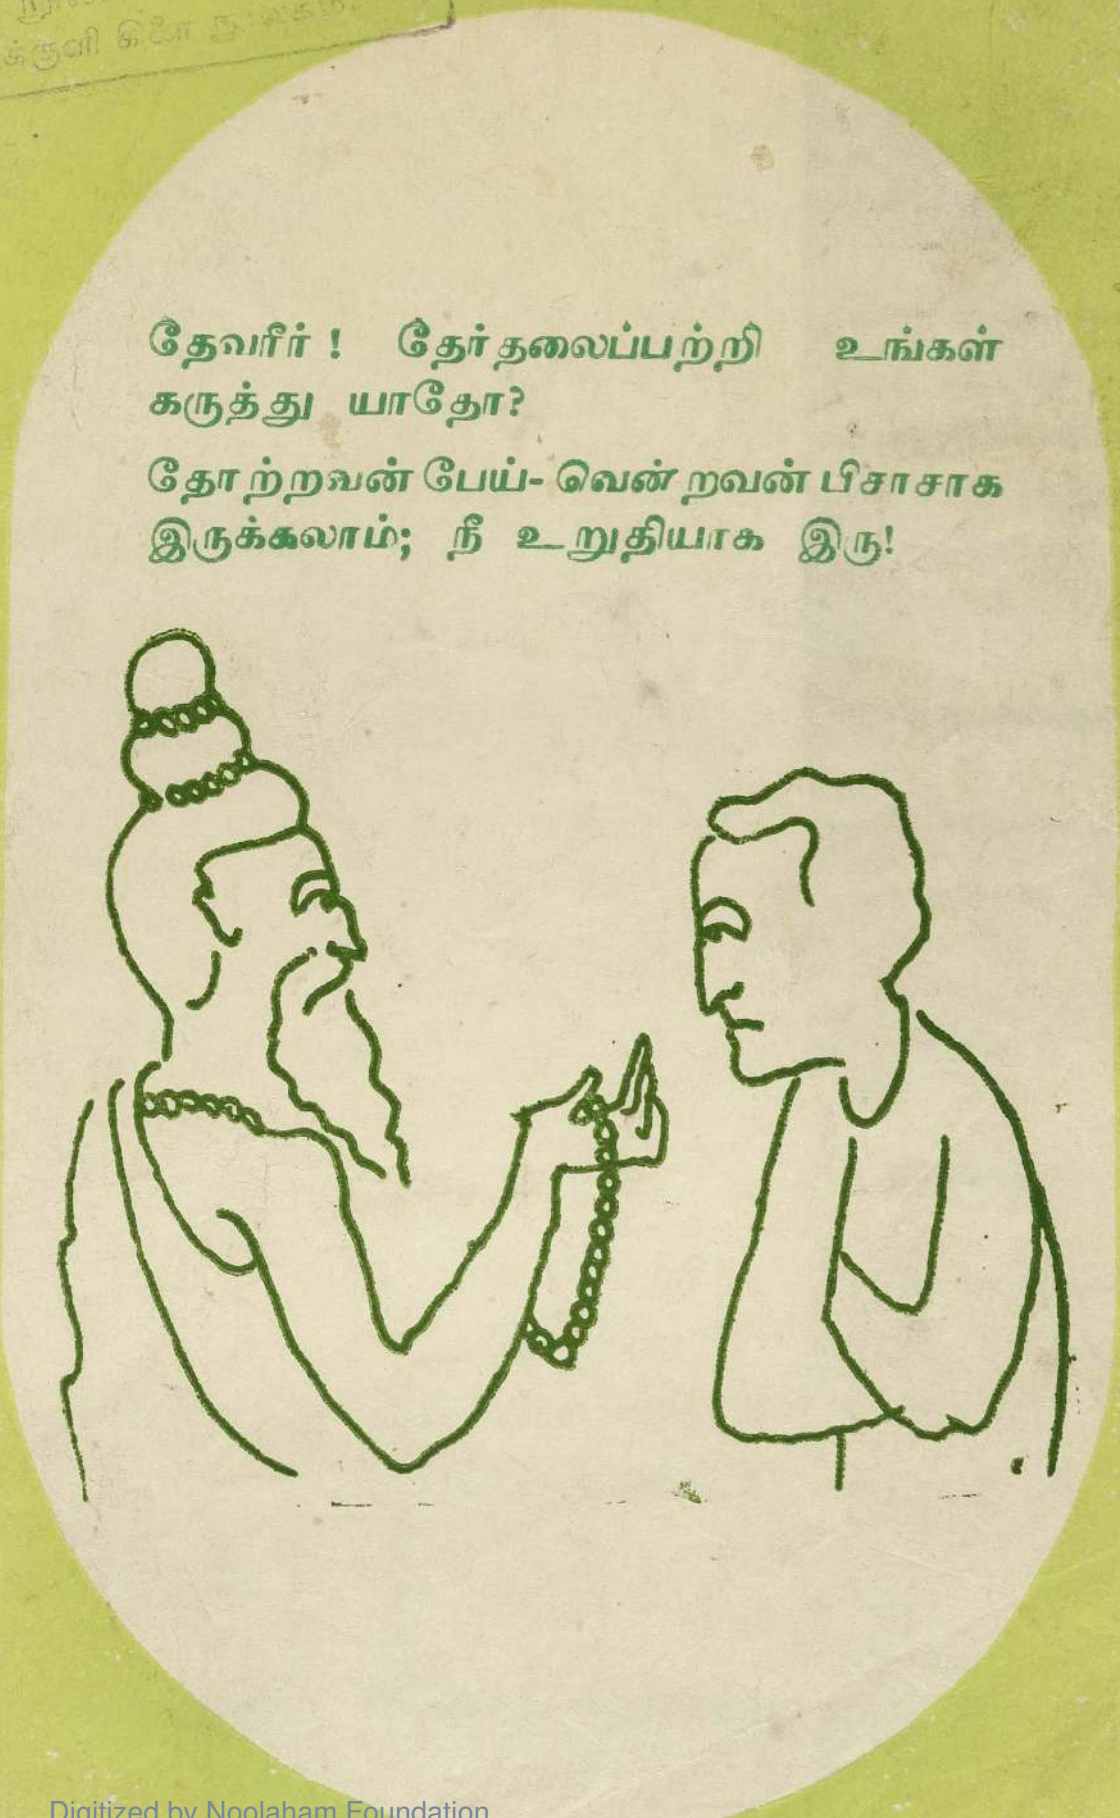 தேவரீர் ! தேர்தலைப்பற்றி உங்கள்
கருத்து யாதோ?
தோற்றவன் பேய்- வென்றவன் பிசாசாக
இருக்கலாம்; நீ உறுதியாக இரு!
Digitized by Noolaham Foundation